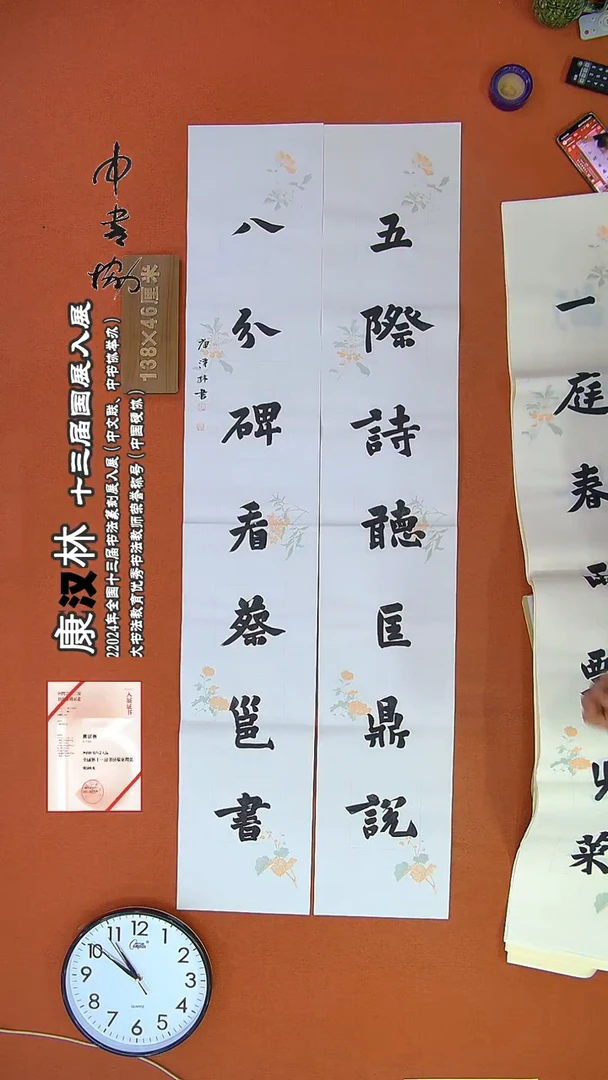 五際詩聽匡鼎說
八分碑看蔡邕書
一庭春
菜
中书协
138×46厘米
康汉林 十三届国展入展
22024年全国十三届书法篆刻展入展（中文联、中书协举办）
大书法教育优秀书法教师荣誉称号（中国硬协）
入展证书
12
1
2
3
4
5
6
7
8
9
10
11